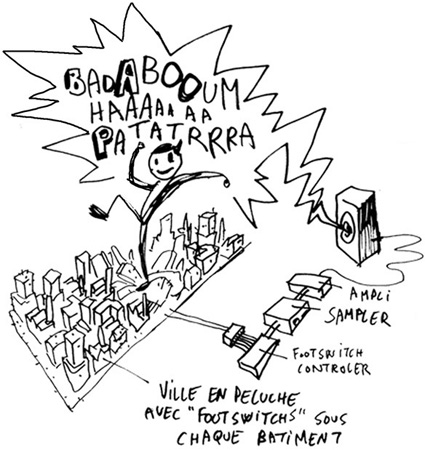 BADABOOUM
HAAAAAAA
PATATRRRA
AMPLI
SAMPLER
FOOTSWITCH
CONTROLER
VILLE EN PELUCHE
AVEC "FOOTSWITCHS" SOUS
CHAQUE BATIMENT